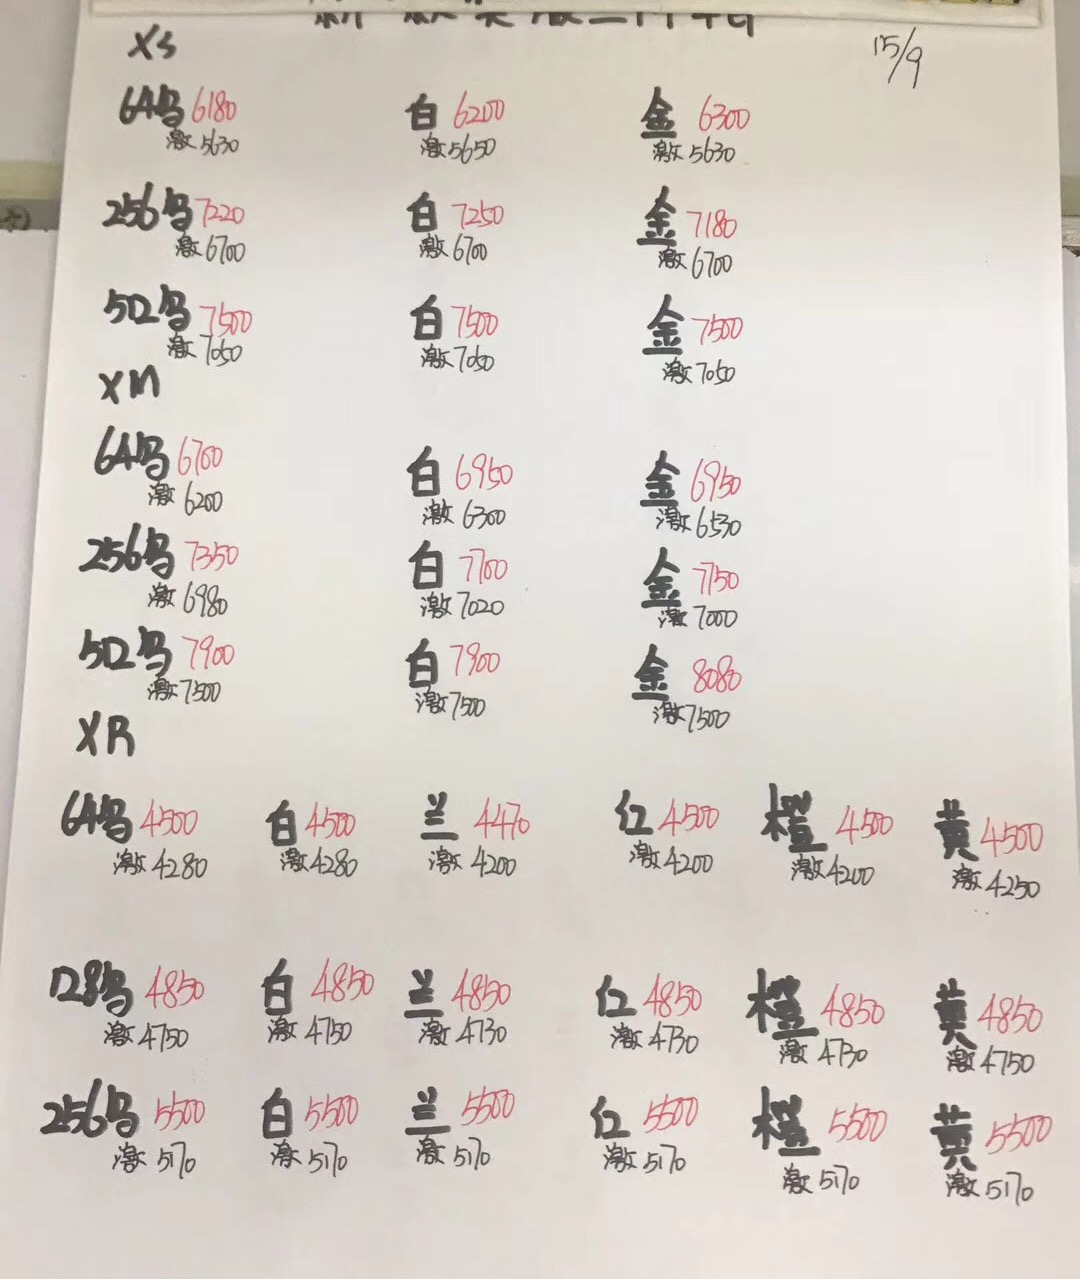 15/9
XS
64乌 6180 白 6200 金 6300
激 5630 激 5650 激 5630
256乌 7220 白 7250 金 7180
激 6700 激 6700 激 6700
512乌 7500 白 7500 金 7500
激 7050 激 7050 激 7050
XM
64乌 6700 白 6950 金 6950
激 6200 激 6300 激 6530
256乌 7350 白 7700 金 7750
激 6980 激 7020 激 7000
512乌 7900 白 7900 金 8080
激 7500 激 7500 激 7500
XR
64乌 4500 白 4500 兰 4470 红 4500 橙 4500 黄 4500
激 4280 激 4280 激 4200 激 4200 激 4200 激 4250
128乌 4850 白 4850 兰 4850 红 4850 橙 4850 黄 4850
激 4750 激 4750 激 4730 激 4730 激 4730 激 4750
256乌 5500 白 5500 兰 5500 红 5500 橙 5500 黄 5500
激 5170 激 5170 激 5170 激 5170 激 5170 激 5170